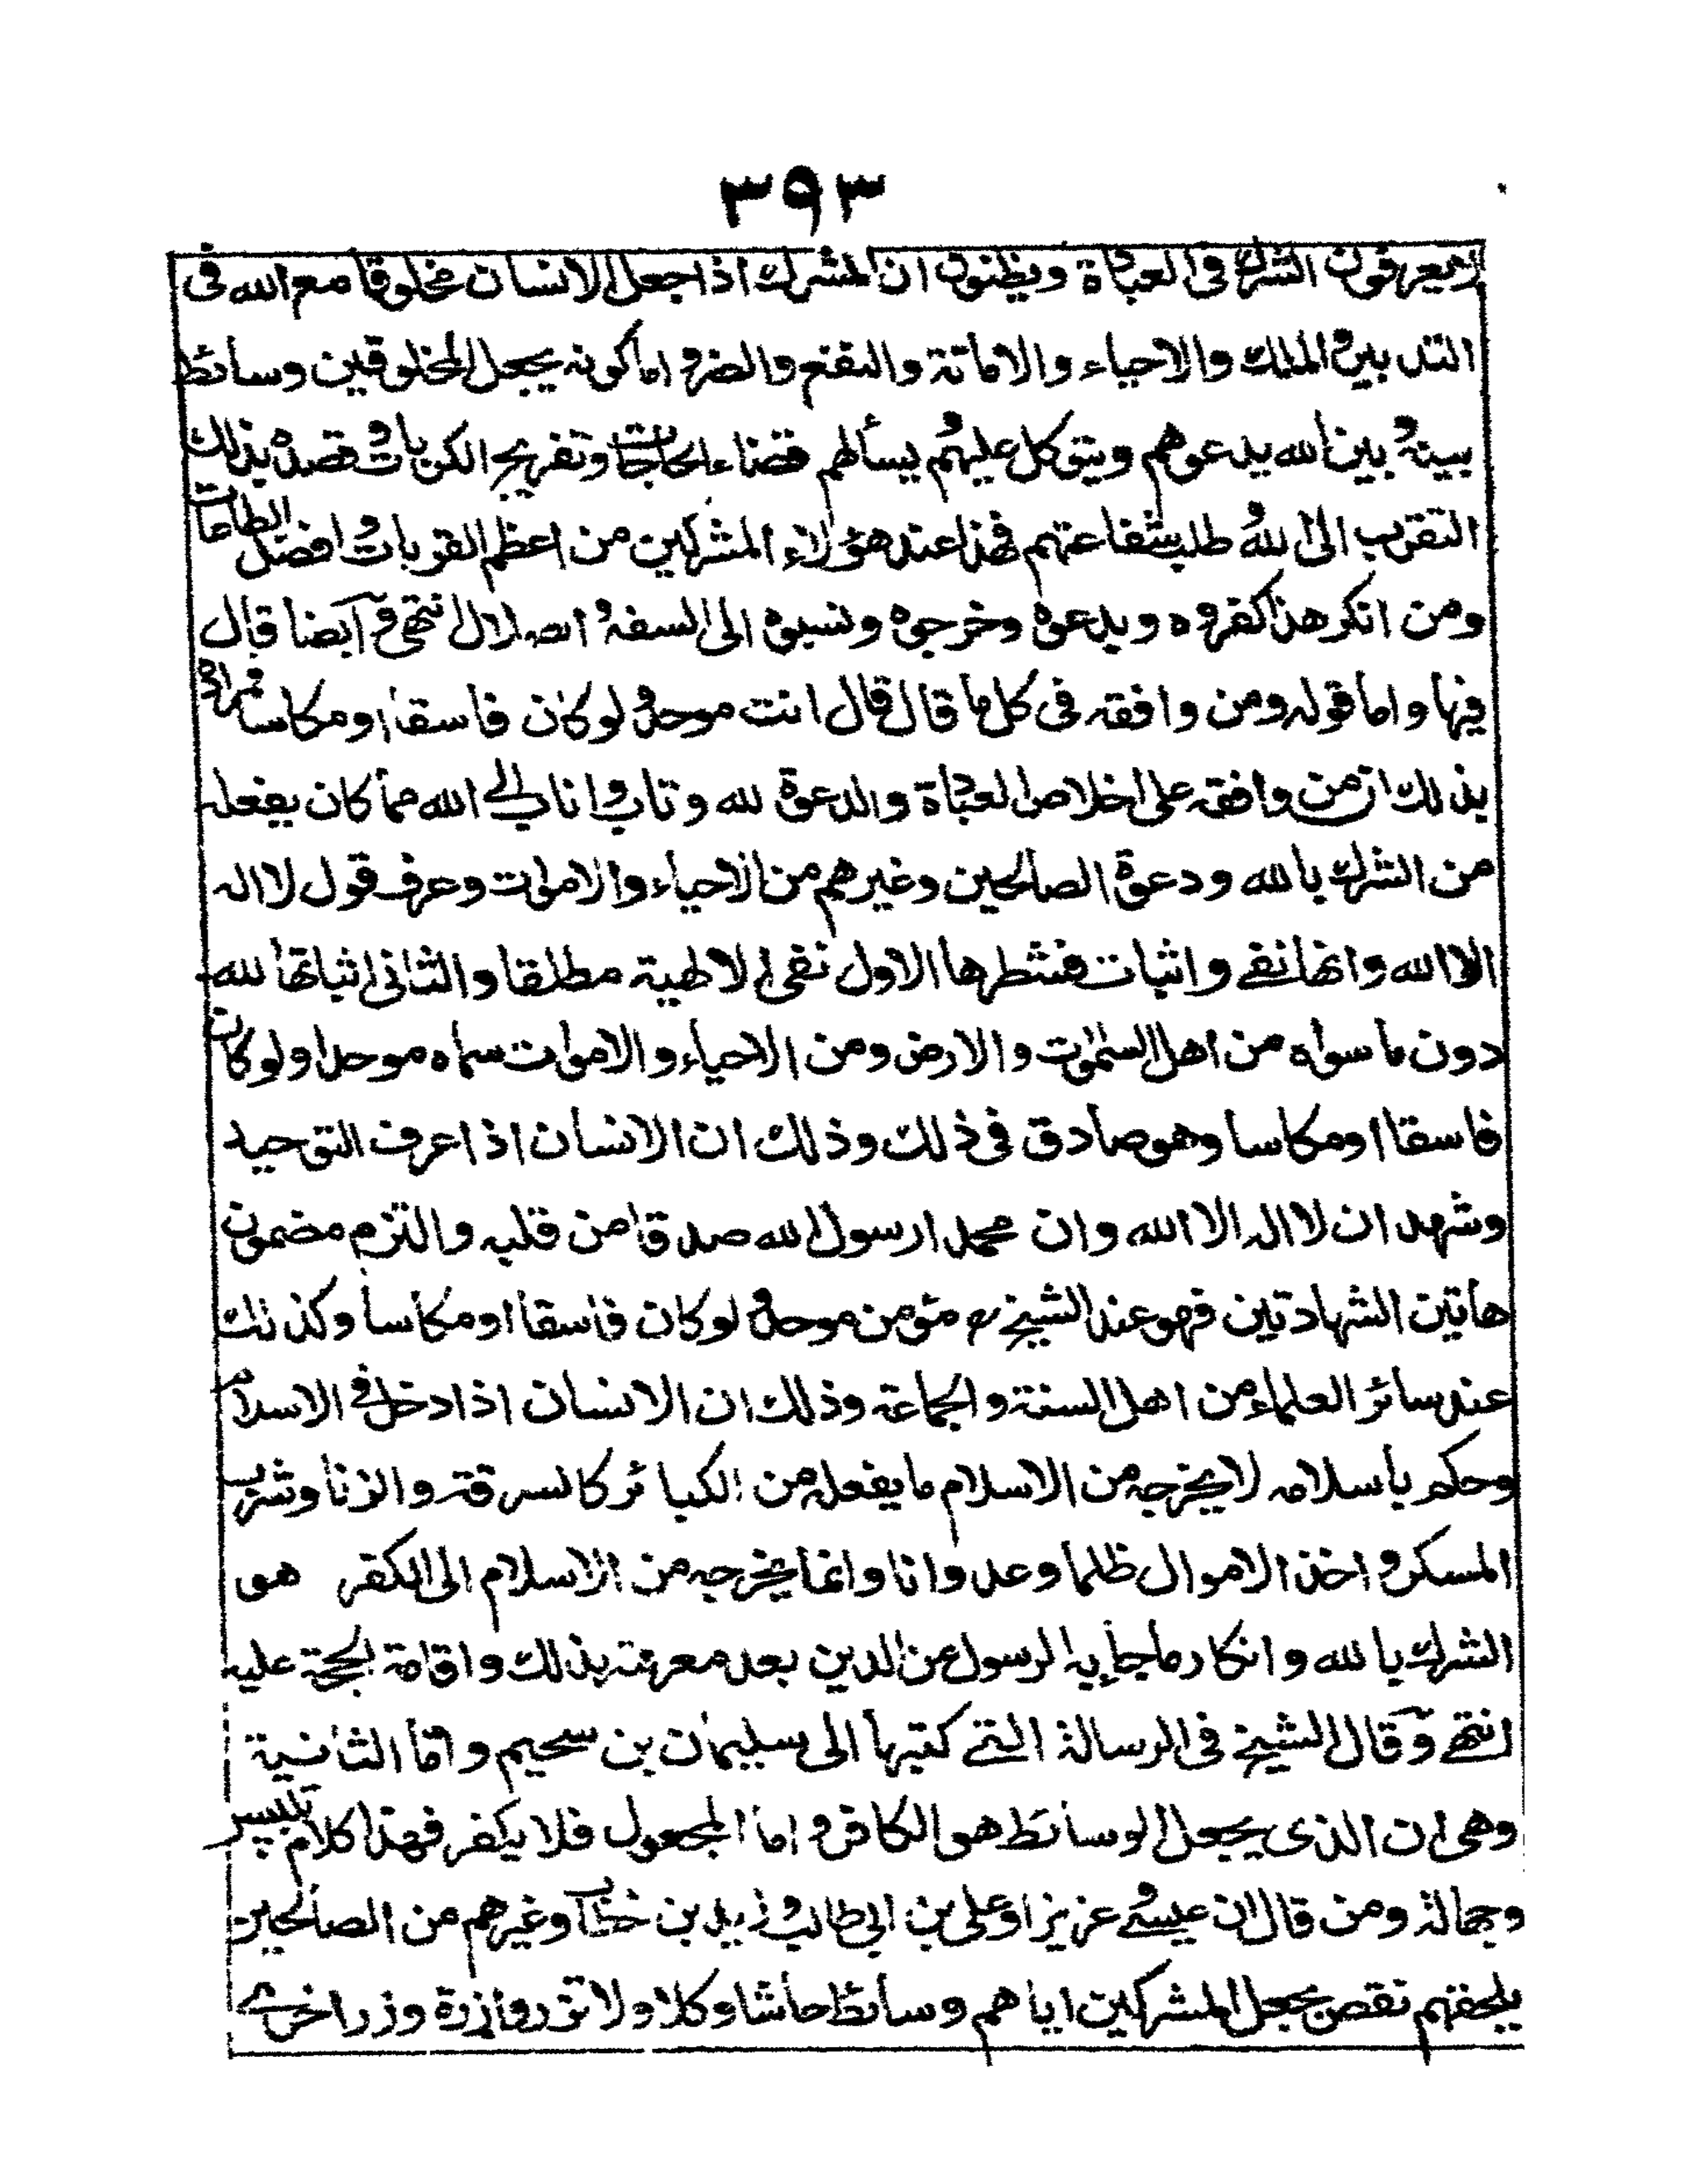 ٣٩٣
لا يعرفون الشرك في العبادة ويظنون ان المشرك اذا جعل الانسان مخلوقا مع الله فى
التدبير والملك والاحياء والاماتة والنفع والضر واما كونه يجعل المخلوقين وسائط
بينه وبين الله يدعوهم ويتوكل عليهم ويسألهم قضاء الحاجات وتفريج الكربات وقصده بذلك
التقرب الى الله وطلب شفاعتهم فهذا عند هؤلاء المشركين من اعظم القربات وافضل الطاعات
ومن انكر هذا كفروه وبدعوه وخرجوه ونسبوه الى السفه والضلال انتهى وايضا قال
فيها واما قوله ومن وافقه فى كل ما قال قال انت موحد ولو كان فاسقا او مكاسا فمراده
بذلك ان من وافقه على اخلاص العبادة والدعوة لله وتاب واناب الى الله مما كان يفعله
من الشرك بالله ودعوة الصالحين وغيرهم من الاحياء والاموات وعرف قول لا اله
الا الله وانها نفى واثبات فشطرها الاول نفى الالهية مطلقا والثانى اثباتها لله
دون ما سواه من اهل السمٰوات والارض ومن الاحياء والاموات سماه موحدا ولو كان
فاسقا او مكاسا وهو صادق فى ذلك وذلك ان الانسان اذا عرف التوحيد
وشهد ان لا اله الا الله وان محمدا رسول الله صدقا من قلبه والتزم مضمون
هاتين الشهادتين فهو عند الشيخ رح مؤمن موحد ولو كان فاسقا او مكاسا وكذلك
عند سائر العلماء من اهل السنة والجماعة وذلك ان الانسان اذا دخل فى الاسلام
وحكم باسلامه لا يخرجه من الاسلام ما يفعله من الكبائر كالسرقة والزنا وشرب
المسكر واخذ الاموال ظلما وعدوانا وانما يخرجه من الاسلام الى الكفر هو
الشرك بالله وانكار ما جاء به الرسول من الدين بعد معرفته بذلك واقامة الحجة عليه
انتهى وقال الشيخ فى الرسالة التى كتبها الى سليمان بن سحيم واما الثانية
وهى ان الذى يجعل الوسائط هو الكافر واما المجعول فلا يكفر فهذا كلام تلبيس
وجهالة ومن قال ان عيسى وعزيرا وعلى بن ابى طالب وزيد بن خطاب وغيرهم من الصالحين
يلحقهم نقص بجعل المشركين اياهم وسائط حاشا وكلا ولا تزر وازرة وزر اخرى